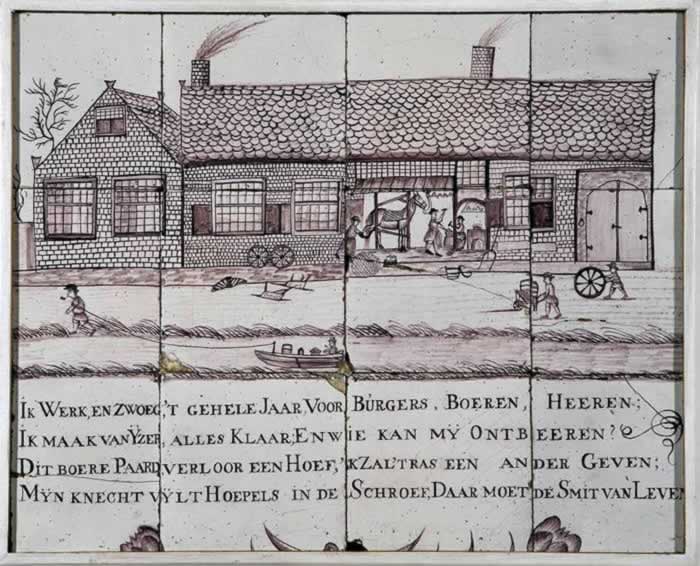 Ik Werk, en zwoeg, 't gehele Jaar, Voor Burgers, Boeren, Heeren;
Ik maak van Yzer, alles Klaar; En wie kan mÿ Ontbeeren?
Dit boere Paard, verloor een Hoef, 'k zal't ras een ander Geven;
Mÿn knecht vÿlt Hoepels in de Schroef, Daar moet de Smit van Leven